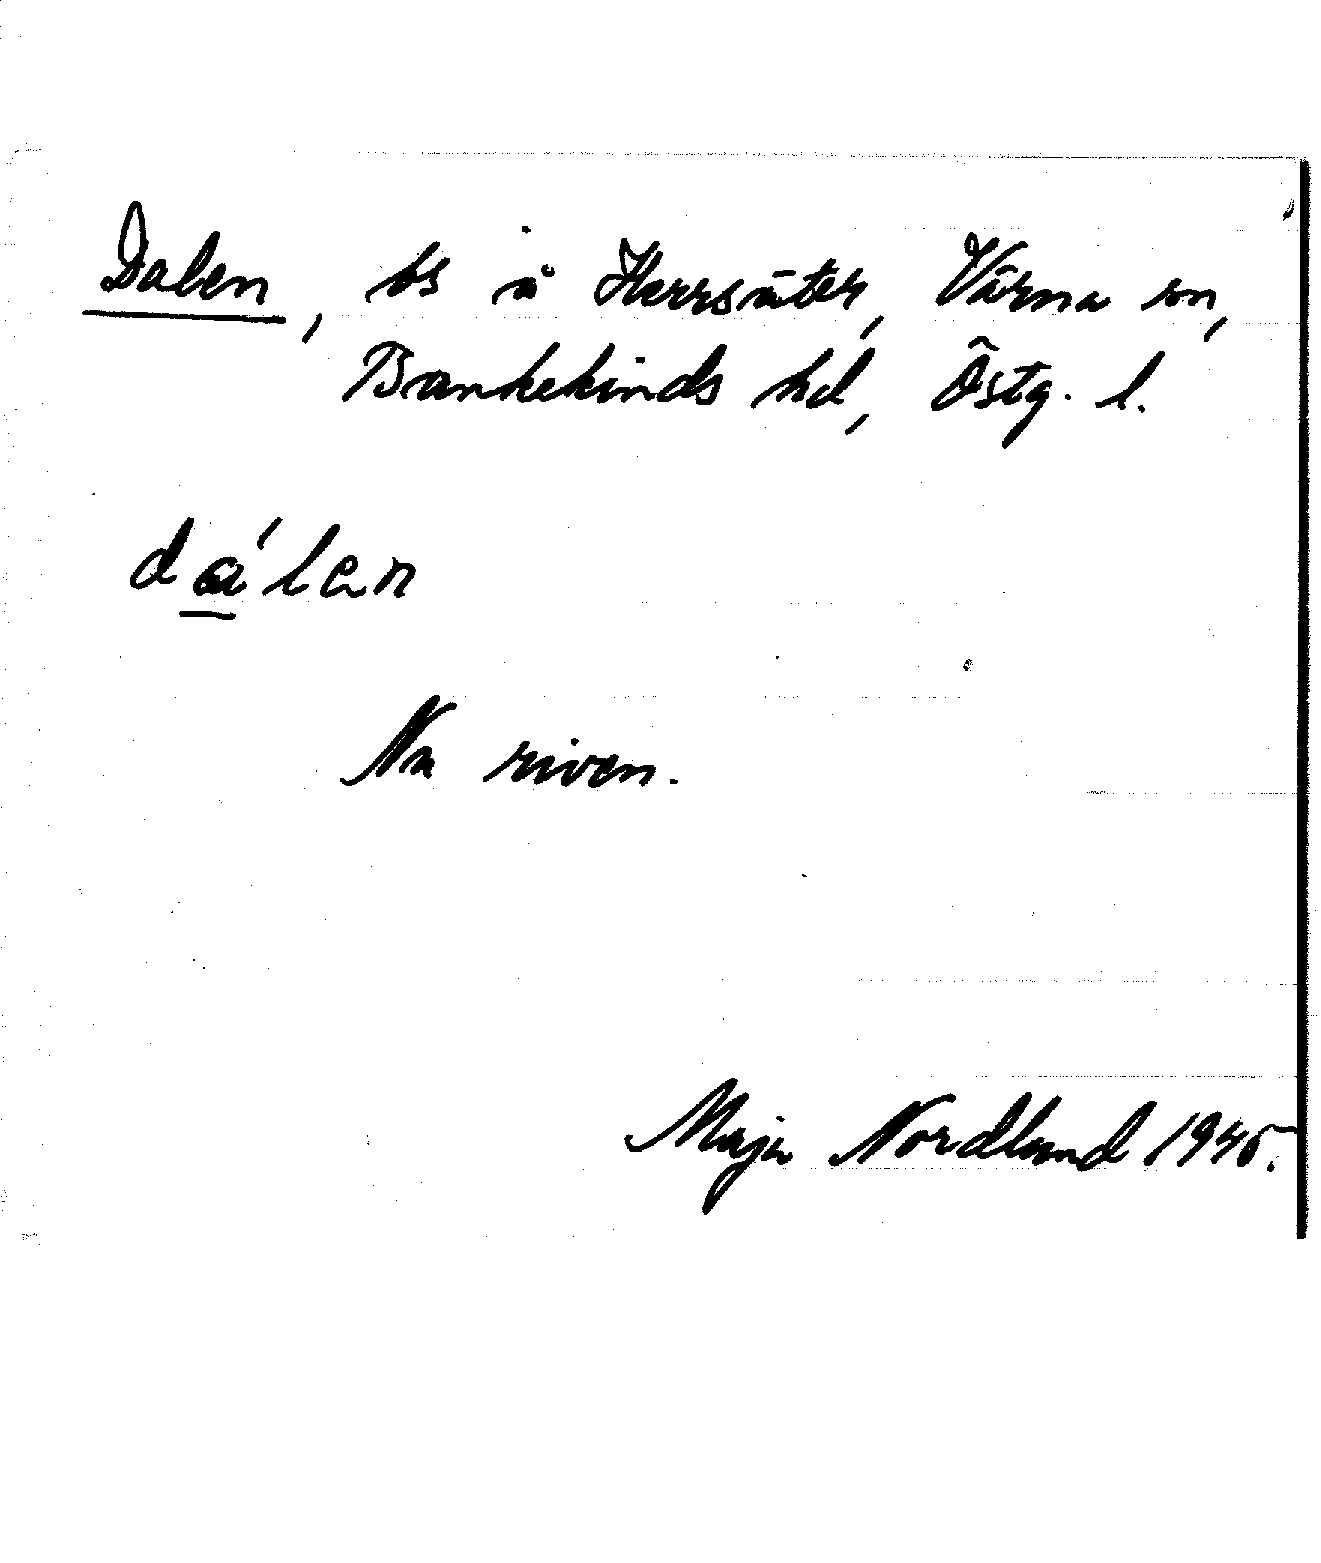 Dalen, bs å Herrsäter, Värna sn,
Bankekinds hd, Östg. l.
dá̱len
Nu riven.
Maja Nordlund 1945.